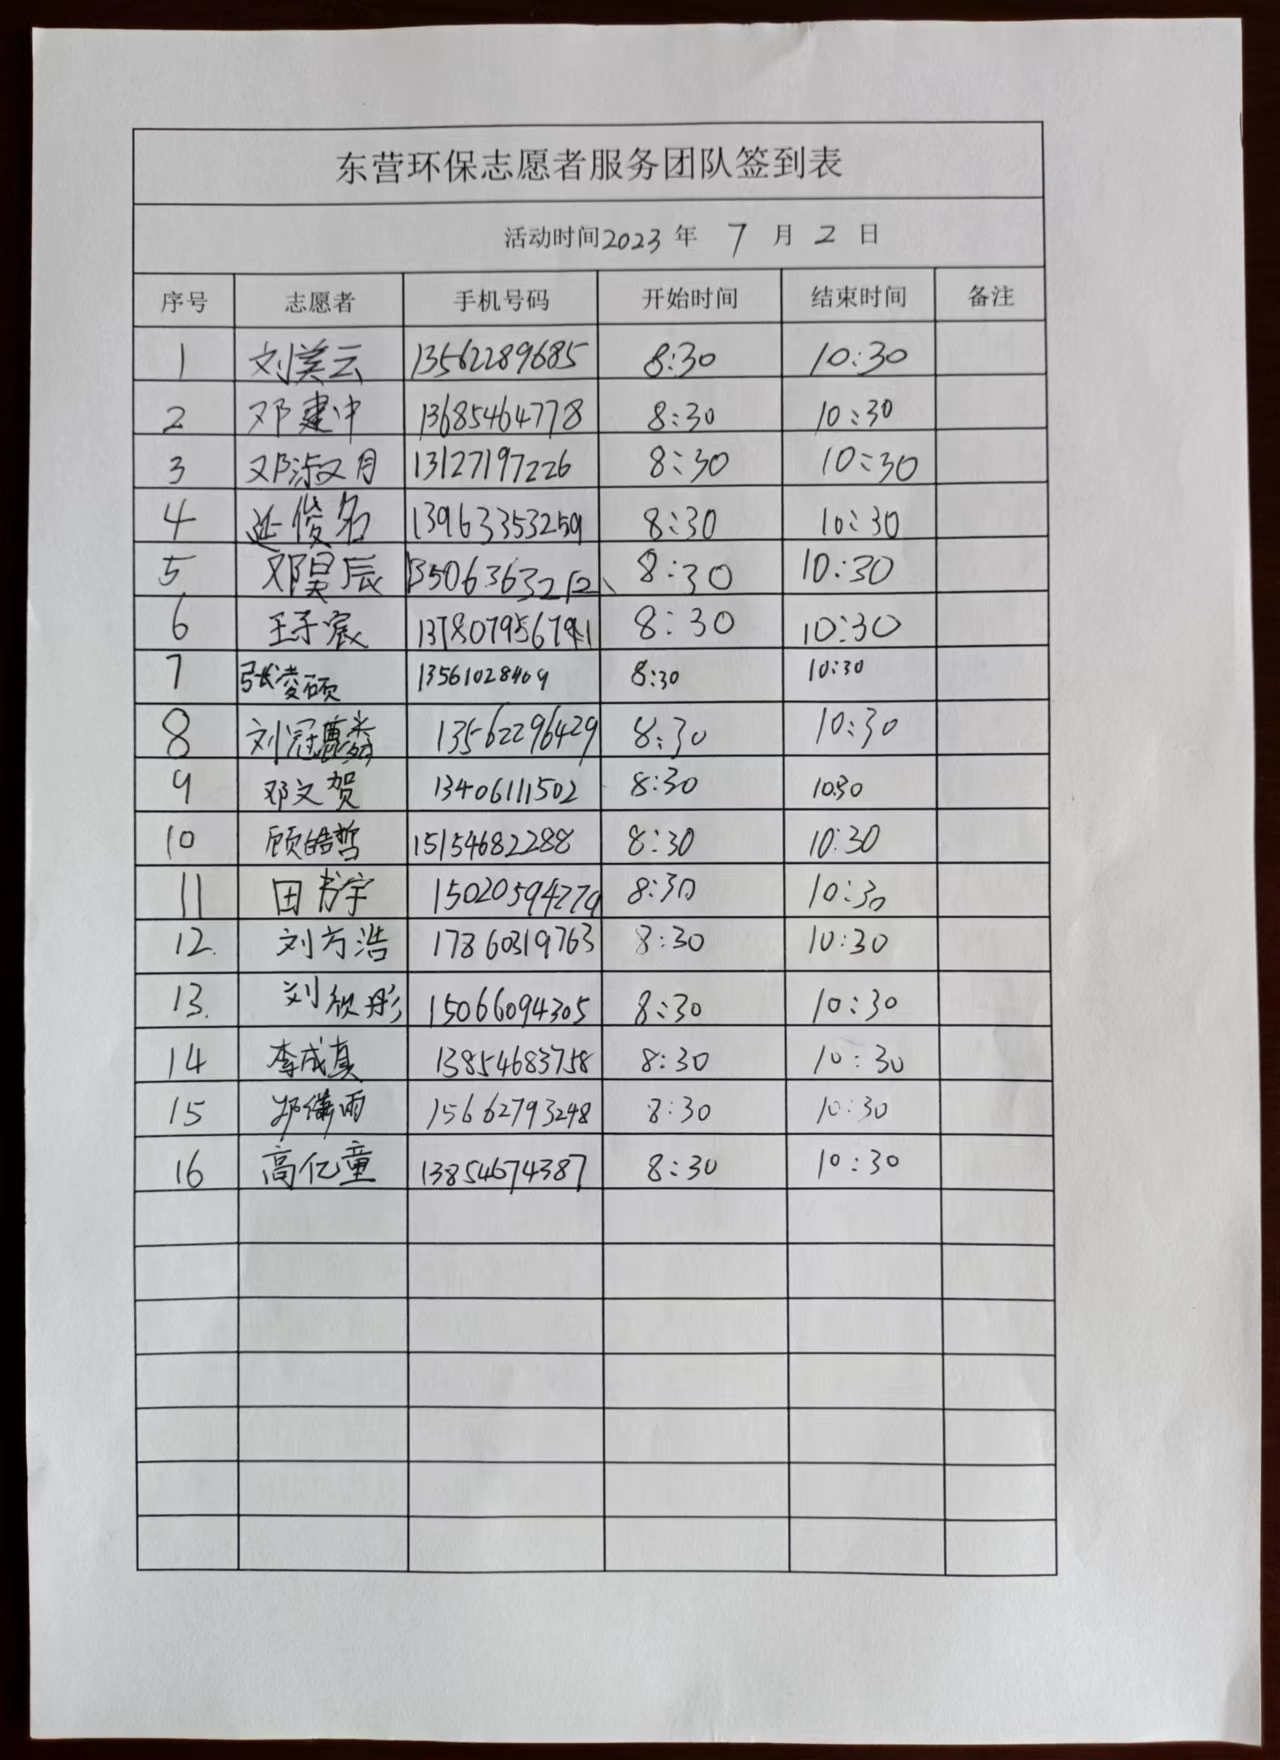 东营环保志愿者服务团队签到表
活动时间2023年 7月2日
序号 志愿者 手机号码 开始时间 结束时间 备注
1 刘美云 13562289685 8:30 10:30
2 邓建中 13685464778 8:30 10:30
3 邓淑月 13127197226 8:30 10:30
4 延俊名 13963353259 8:30 10:30
5 邓昊辰 8:30 10:30
6 王子宸 8:30 10:30
7 张凌硕 13561028409 8:30 10:30
8 刘冠麟 13562296429 8:30 10:30
9 邓文贺 13406111502 8:30 10:30
10 顾皓哲 15154682288 8:30 10:30
11 田书宇 15020594279 8:30 10:30
12. 刘方浩 17860319763 8:30 10:30
13. 刘欣彤 15066094305 8:30 10:30
14 李成真 13854683758 8:30 10:30
15 15662793248 8:30 10:30
16 高亿童 13854674387 8:30 10:30